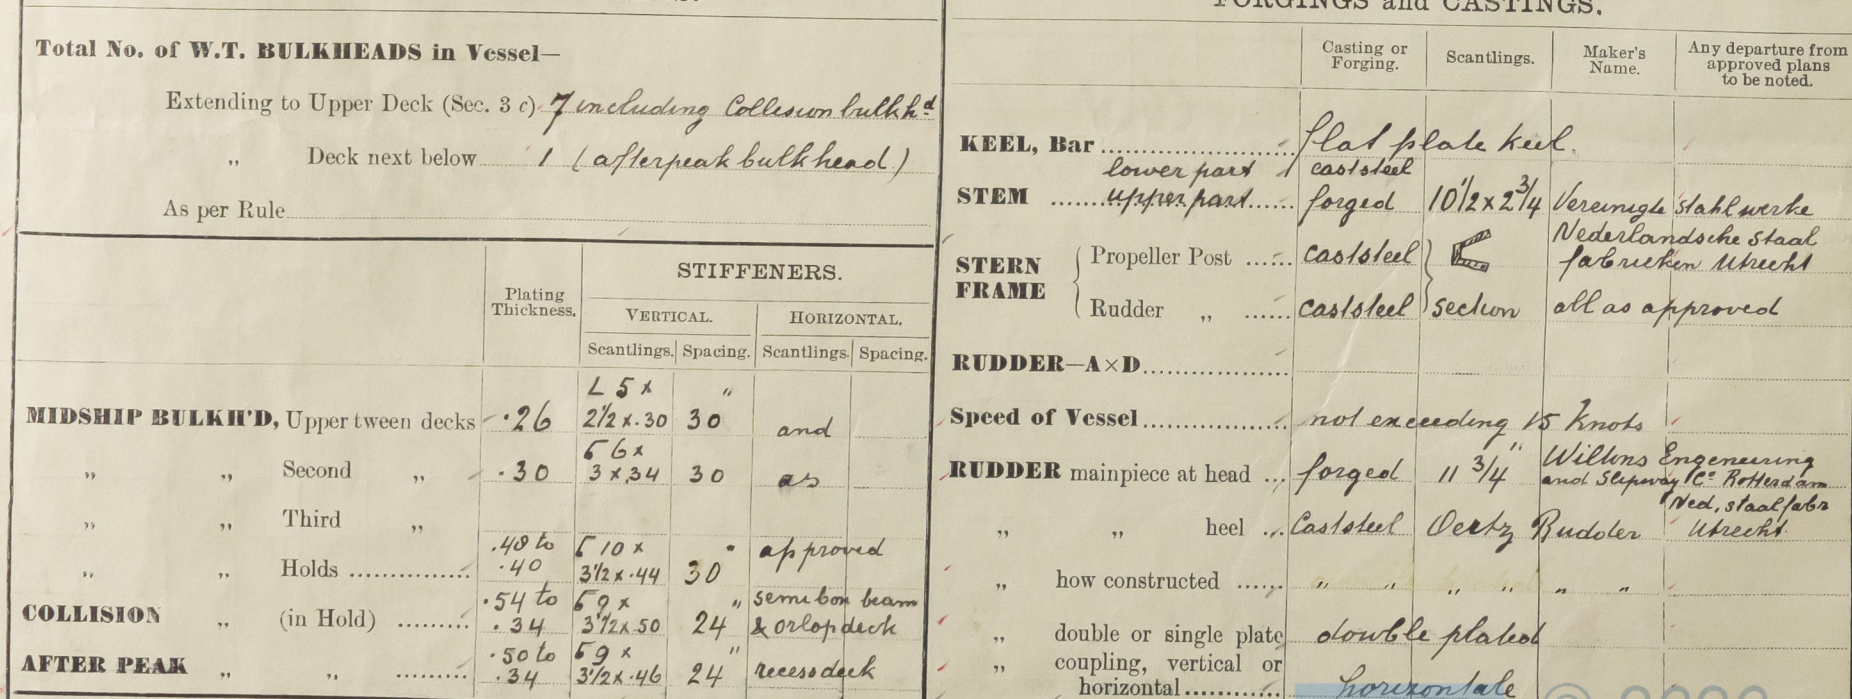 FORGINGS and CASTINGS.
Total No. of W.T. BULKHEADS in Vessel—
Extending to Upper Deck (Sec. 3 c) 7 including Collision bulkhd
„ Deck next below 1 (afterpeak bulkhead)
As per Rule
Plating Thickness. STIFFENERS.
VERTICAL. HORIZONTAL.
Scantlings. Spacing. Scantlings. Spacing.
MIDSHIP BULKH'D, Upper tween decks .26 L 5 x 2 1/2 x .30 30" and
„ „ Second „ .30 6 x 3 x .34 30 as
„ „ Third „
„ „ Holds .48 to .40 10 x 3 1/2 x .44 30" approved
COLLISION „ (in Hold) .54 to .34 9 x 3 1/2 x .50 24" semi box beam & orlopdeck
AFTER PEAK „ „ .50 to .34 9 x 3 1/2 x .46 24" recessdeck
Casting or Forging. Scantlings. Maker's Name. Any departure from approved plans to be noted.
KEEL, Bar flat plate keel.
lower part caststeel
STEM upper part forged 10 1/2 x 2 3/4 Vereinigte Stahlwerke
STERN FRAME { Propeller Post caststeel } Nederlandsche Staal fabrieken Utrecht
Rudder „ caststeel section all as approved
RUDDER—A×D
Speed of Vessel not exceeding 15 knots
RUDDER mainpiece at head forged 11 3/4" Wiltons Engeneering and Slipway Co Rotterdam
„ „ heel Caststeel Oertz Rudder Ned. staalfabr Utrecht
„ how constructed „ „ „ „ „ „
„ double or single plate double plated
„ coupling, vertical or horizontal horizontale